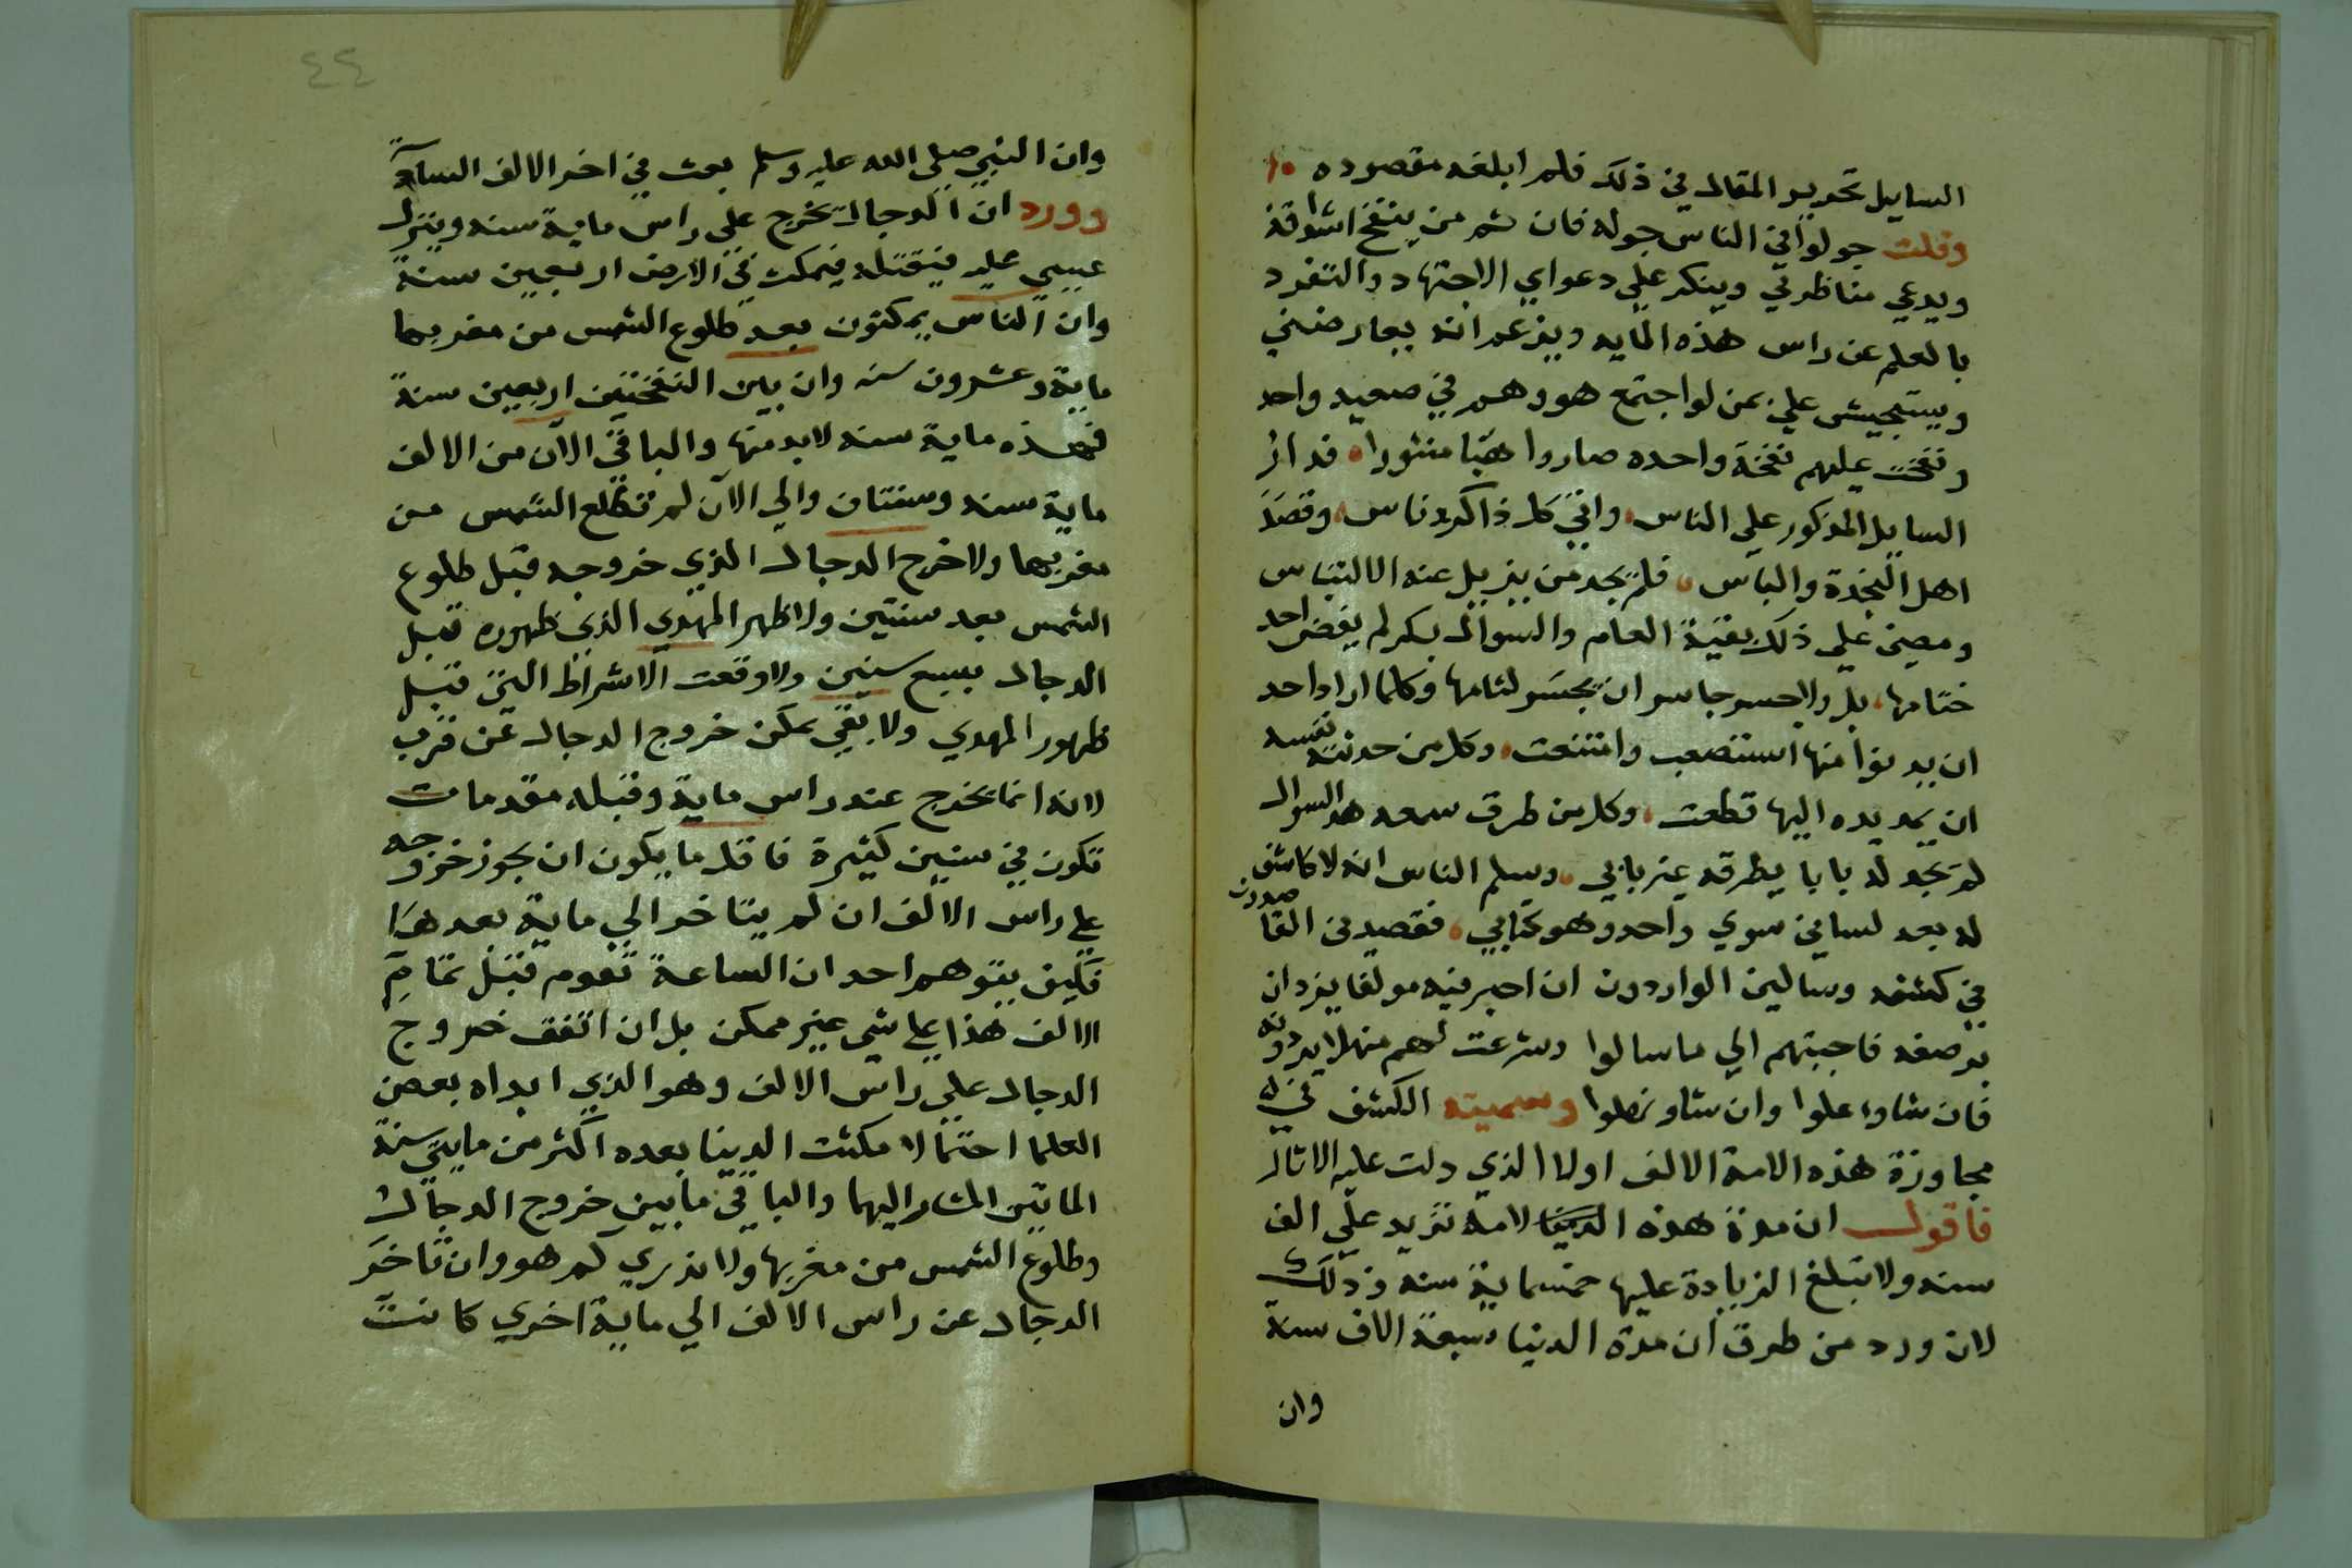 السايل تحرير المقال في ذلك فلم ابلغه مقصوده
وقلت جولوا في الناس جوله فان ثم من ينفخ اشداقه
ويدعي مناظرتي وينكر علي دعواي الاجتهاد والتفرد
بالعلم عن راس هذه المايه ويزعم انه يعارضني
ويستجيش علي بمن لو اجتمع هو وهم في صعيد واحد
ونفخت عليهم نفخة واحده صاروا هبا منثورا فدار
السايل المذكور علي الناس واتي كل ذاكر وناس وقصد
اهل النجدة والباس فلم يجد من يزيل عنه الالتباس
ومضي علي ذلك بقية العام والسوال بكر لم يفض احد
ختامها بل ولا جسر جاسر ان يحسر لثامها وكلما اراد احد
ان يدنوا منها استصعب وامتنعت وكل من حدثته نفسه
ان يمد يده اليها قطعت وكل من طرق سمعه هذا السوال
لم يجد له بابا يطرقه غير بابي وسلم الناس انه لا كاشف
له بعد لساني سوي واحد وهو كتابي فقصدني القاصدون
في كشفه وسالني الواردون ان احبر فيه مولفا يزدان
بوصفه فاجبتهم الي ما سالوا وشرعت لهم منهلا يردونه
فان شاوا علوا وان شاو نهلوا وسميته الكشف في
مجاوزة هذه الامة الالف اولا الذي دلت عليه الاثار
فاقول ان مدة هذه الدنيا لامة تزيد علي الف
سنه ولا تبلغ الزيادة عليها خمسماية سنه وذلك
لان ورد من طرق ان مدة الدنيا سبعة الاف سنة
وان
٤٤
وان النبي صلي الله عليه وسلم بعث في اخر الالف السادسة
وورد ان الدجال يخرج علي راس ماية سنه وينزل
عيسي عليه فيقتله فيمكث في الارض اربعين سنة
وان الناس يمكثون بعد طلوع الشمس من مغربها
ماية وعشرون سنه وان بين النفختين اربعين سنة
فهذه ماية سنه لابد منها والباقي الآن من الالف
ماية سنه وسنتان والي الآن لم تطلع الشمس من
مغربها ولا خرج الدجال الذي خروجه قبل طلوع
الشمس بعد سنتين ولا ظهر المهدي الذي ظهوره قبل
الدجال بسبع سنين ولا وقعت الاشراط التي قبل
ظهور المهدي ولا بقي يمكن خروج الدجال عن قرب
لانه انما يخرج عند راس ماية وقبله مقدمات
تكون في سنين كثيرة فاقل ما يكون ان يجوز خروجه
علي راس الالف ان لم يتاخر الي ماية بعدها
فكيف يتوهم احد ان الساعة تقوم قبل تمام
الالف هذا علي شي غير ممكن بل ان اتفق خروج
الدجال علي راس الالف وهو الذي ابداه بعض
العلما احتمالا مكثت الدنيا بعده اكثر من مايتي سنة
المايتين المشار اليها والباقي ما بين خروج الدجال
وطلوع الشمس من مغربها ولا ندري كم هو وان تاخر
الدجال عن راس الالف الي ماية اخري كانت